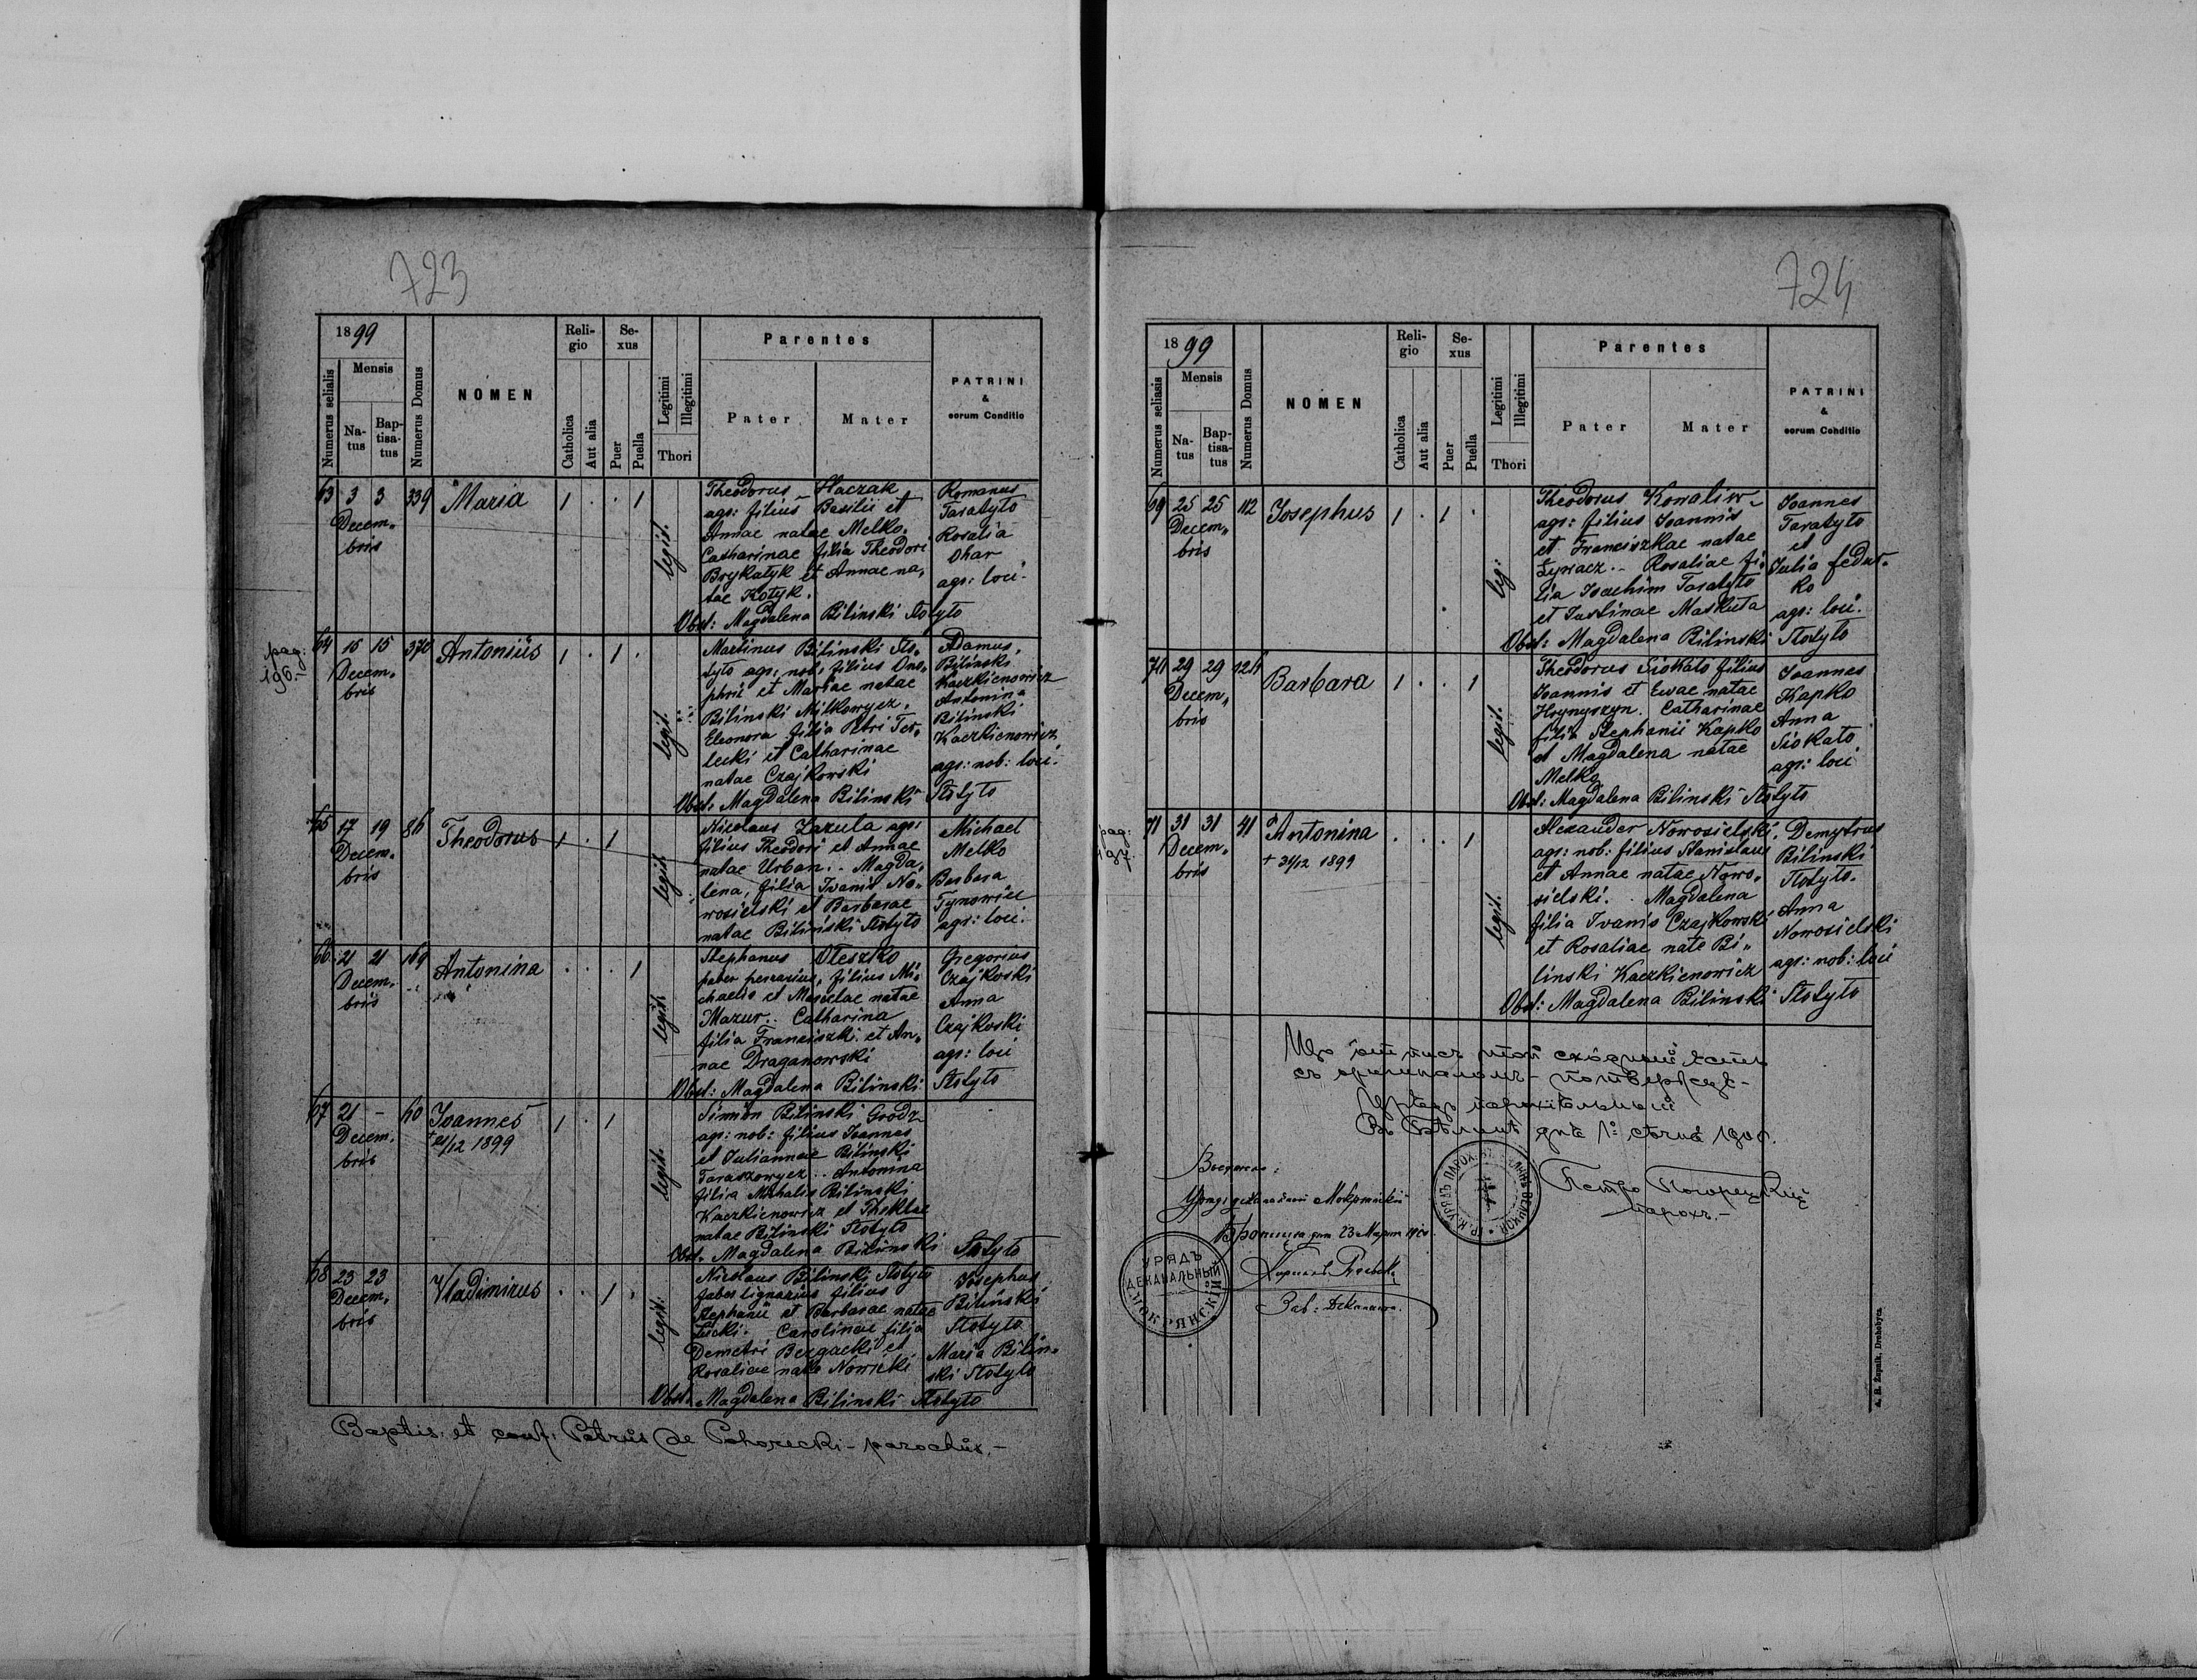 723
1899
Numerus serialis
Mensis
Na-
tus
Bap-
tisa-
tus
Numerus Domus
NOMEN
Reli-
gio
Catholica
Aut alia
Se-
xus
Puer
Puella
Legitimi
Illegitimi
Thori
Parentes
Pater
Mater
PATRINI
&
eorum Conditio
63 3 3 339 Maria 1 . . 1
Decem„
bris
legit.
Theodorus Haczak
agr: filius Basilii et
Annae natae Melko.
Catharinae filia Theodori
Brykatyk et Annae na„
tae Kotyk.
Romanus
Taratyto
Rosalia
Ohar
agr: loci.
Obst: Magdalena Bilinski Stotyto
pag:
196.
64 15 15 370 Antonius 1 . 1 .
Decem„
bris
legit.
Martinus Bilinski Sto„
tyto agr: nob: filius Ono„
phrii et Mariae natae
Bilinski Milkowycz.
Eleonora filia Petri Ter„
lecki et Catharinae
natae Czajkowski
Adamus
Bilinski
Kaczkienowicz
Antonina
Bilinski
Kaczkienowicz
agr: nob: loci.
Obst. Magdalena Bilinski Stotyto
65 17 19 86 Theodorus 1 . 1
Decem„
bris
legit.
Nicolaus Zazula agr:
filius Theodori et Annae
natae Urban. Magda„
lena, filia Ivanis No„
wosielski et Barbarae
natae Bilinski Stotyto
Michael
Melko
Barbara
Tynowicz
agr: loci.
66 21 21 169 Antonina . . . 1
Decem„
bris
legit.
Stephanus Oleszko
faber ferrarius, filius Mi„
chaelis et Mariae natae
Mazur. Catharina
filia Franciszki et An„
nae Draganowski
Gregorius
Czajkoski
Anna
Czajkoski
agr: loci
Obst: Magdalena Bilinski Stotyto
67 21 - 60 Joannes 1 . 1
Decem„
bris
† 21/12 1899
legit.
Simion Bilinski Grodz
agr: nob: filius Joannes
et Juliannae Bilinski
Taraszowycz. Antonina
filia Michalis Bilinski
Kaczkienowicz et Theklae
natae Bilinski Stotyto
Obst. Magdalena Bilinski Stotyto
68 23 23 Vladimirus . . 1 .
Decem„
bris
legit.
Nicolaus Bilinski Stotyto
faber lignarius filius
Stephanii et Barbarae natae
Carolinae filia
Demetri Bezgacki et
Rosaliae nate Nowicki
Josephus
Bilinski
Stotyto
Maria Bilin„
ski Stotyto
Obst. Magdalena Bilinski Stotyto
Baptis. et conf: Petrus de Pohorecki - parochus.-
724
1899
Numerus serialis
Mensis
Na-
tus
Bap-
tisa-
tus
Numerus Domus
NOMEN
Reli-
gio
Catholica
Aut alia
Se-
xus
Puer
Puella
Legitimi
Illegitimi
Thori
Parentes
Pater
Mater
PATRINI
&
eorum Conditio
69 25 25 112 Josephus 1 . 1 .
Decem„
bris
leg:
Theodorus Kowaliw
agr: filius Joannis
et Franciszkae natae
Zywacz.- Rosaliae fi„
lia Joachim Taratyto
et Justinae Maskuta
Joannes
Taratyto
et
Julia Fedus„
ko
agr: loci.
Obst: Magdalena Bilinski Stotyto
70 29 29 124 Barbara 1 . . 1
Decem„
bris
legit.
Theodorus Siokato filius
Joannis et Ewae natae
Hrynyszyn. Catharinae
filia Stephanii Kapko
et Magdalena natae
Melko
Joannes
Kapko
Anna
Siokato
agr: loci
Obst: Magdalena Bilinski Stotyto
pag:
197.
71 31 31 41 Antonina . . . 1
Decem„
bris
† 31/12 1899
legit.
Alexander Nowosielski
agr: nob: filius Stanislaus
et Annae natae Nowo„
sielski. Magdalena
filia Ivanis Czajkowski
et Rosaliae nate Bi„
linski Kaczkienowicz
Demytrus
Bilinski
Stotyto.
Anna
Nowosielski
agr: nob: loci
Obst: Magdalena Bilinski Stotyto
Що отпись той сходный есть
съ оригиналомъ - потверджує-
Урядъ парохіальный
дня 1. січня 1900.
Петро Погорецкій
парохъ.-
Урядъ деканальный Мокрянскій
23 Марта 1900
УРЯДЪ
ДЕКАНАЛЬНЫЙ
МОКРЯНСКІЙ
Зав: Деканата.
A. H. Żupnik, Drohobycz